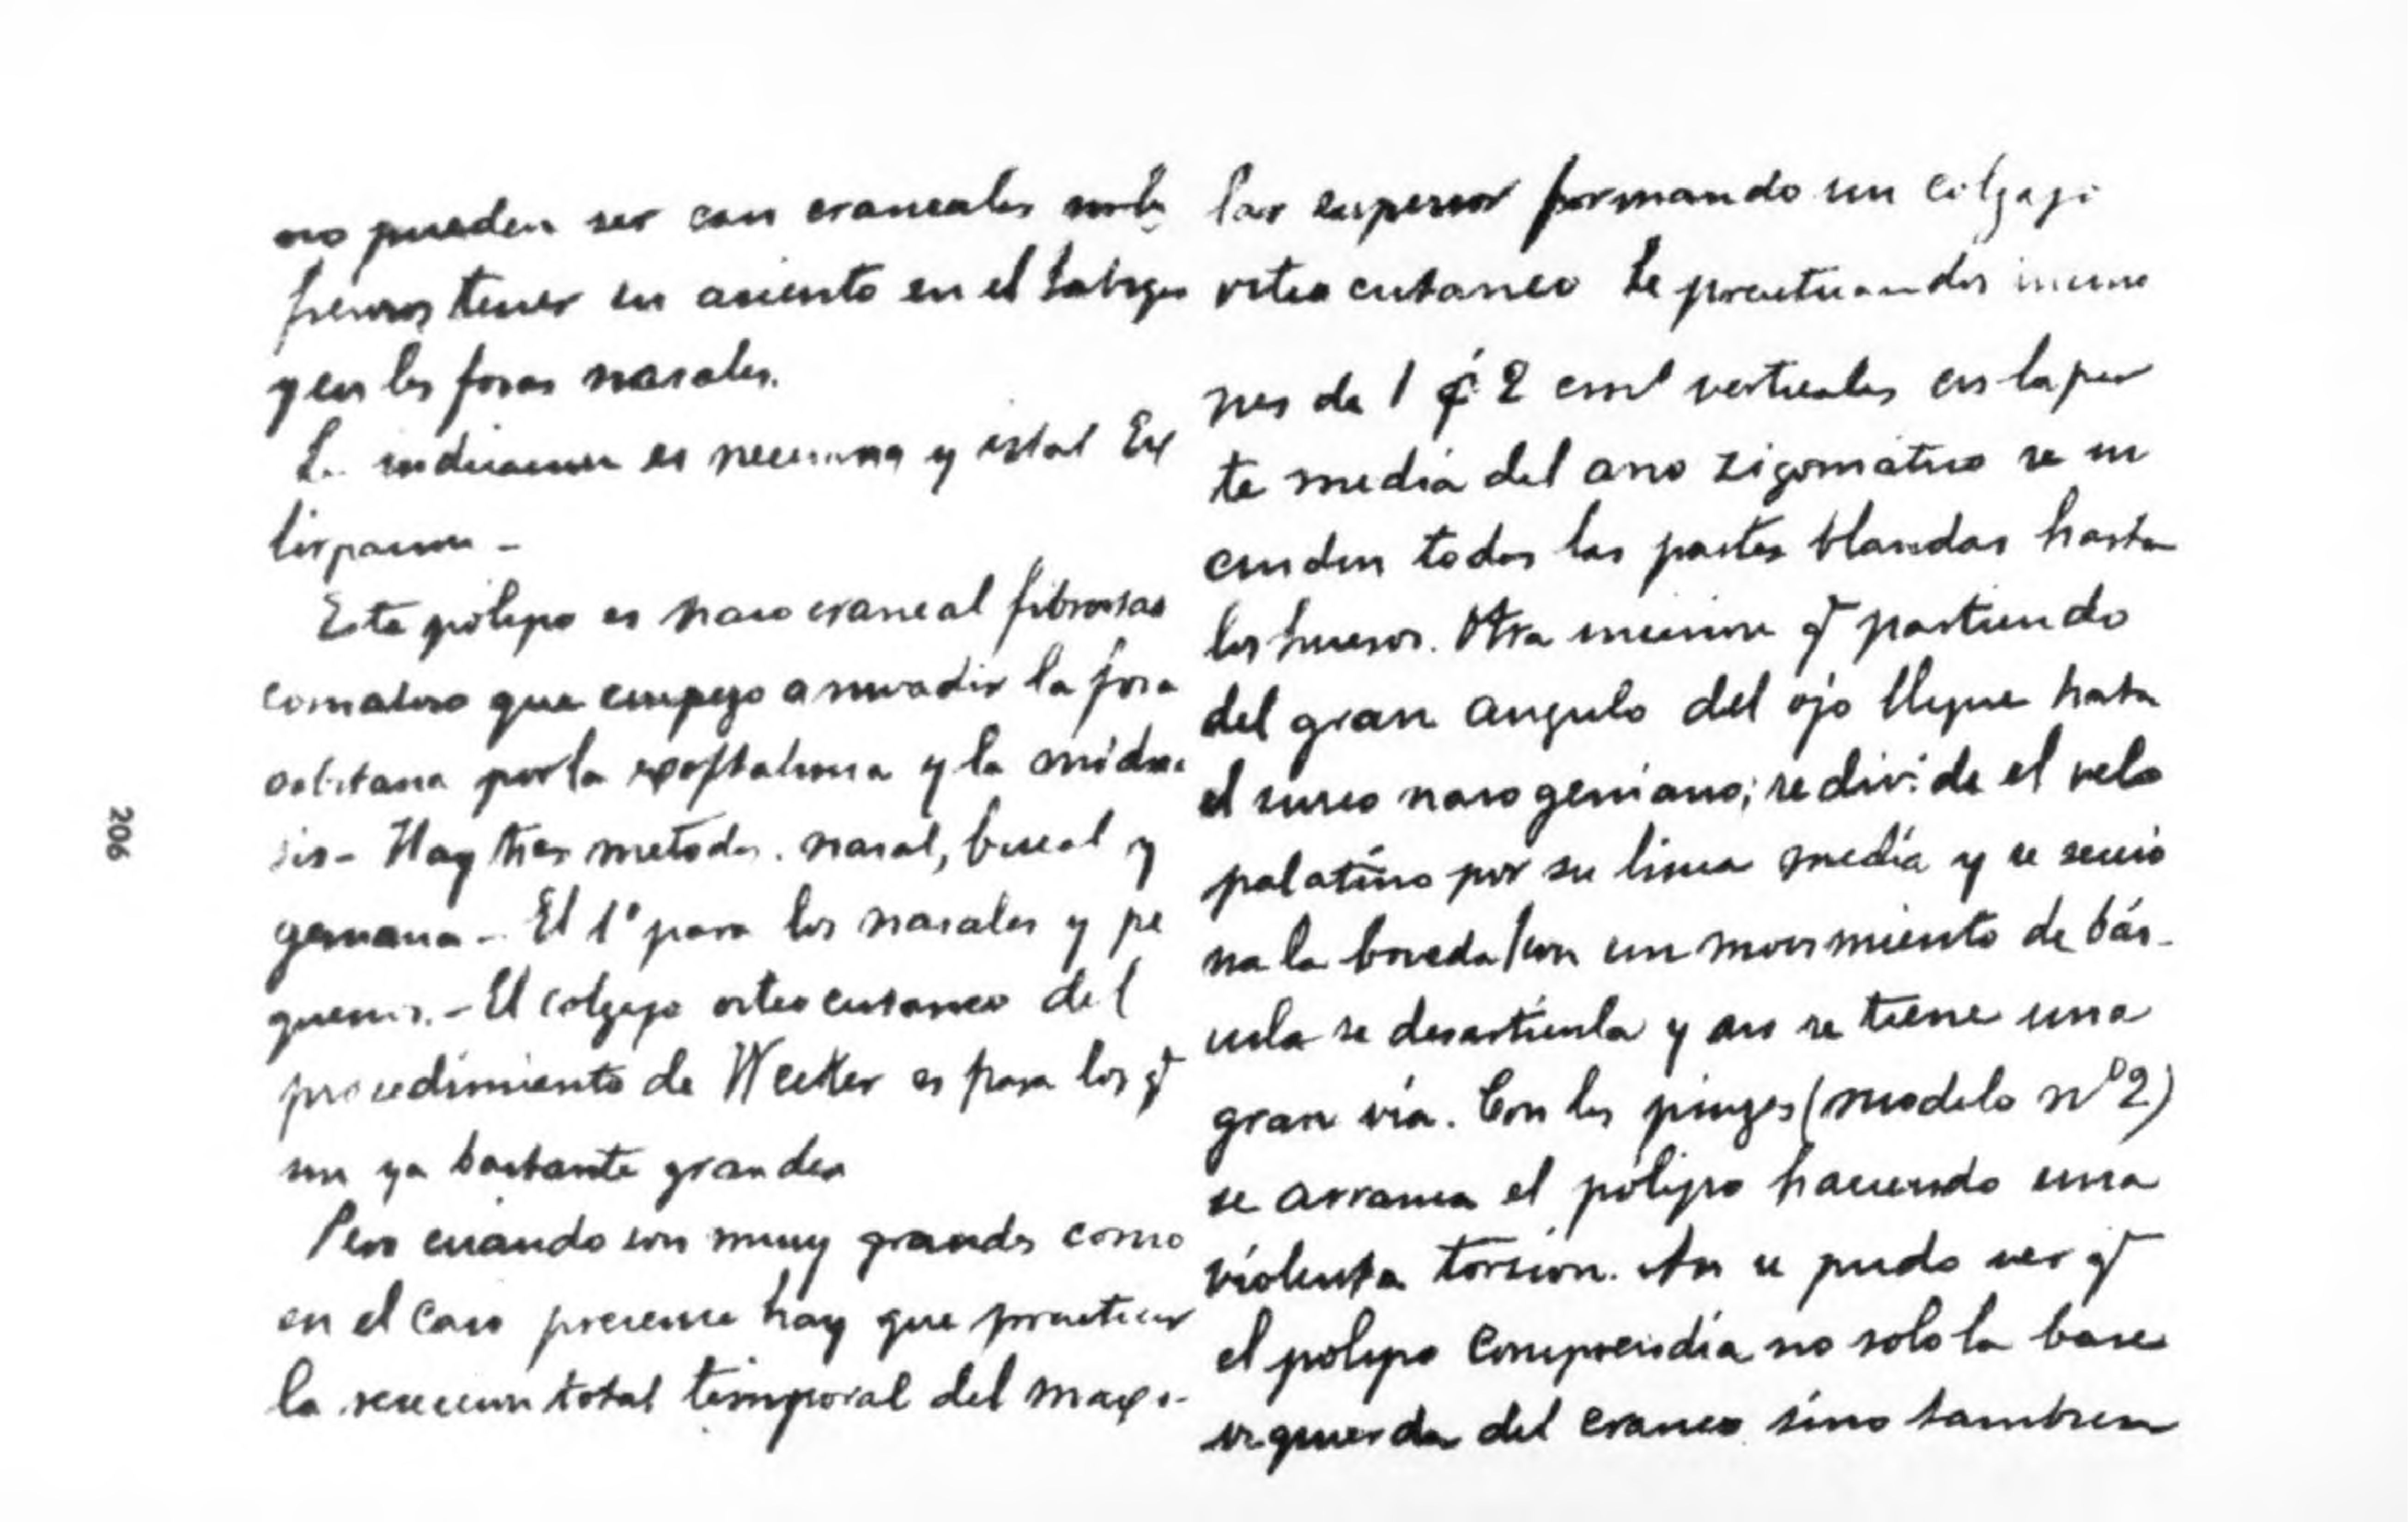 no pueden ser con craneales
tener su asiento en el
y en las fosas nasales.
La indicacion es necesaria y es tal Ex
tirpacion -
Este pólipo es naso craneal fibrosar
comatoso que empezo a invadir la fosa
orbitaria por la exoftalmia y la midria
sis - Hay tres metodos. nasal, bucal y
geniana - El 1º para los nasales y pe
queños. - El colgajo osteo cutaneo del
procedimiento de es para los q
son ya bastante grandes
Pero cuando son muy grandes como
en el caso presente hay que practicar
la reseccion total temporal del maxi-
lar superior formando un colgajo
osteo cutaneo Se practican dos incisio
nes de 1 ó 2 cm verticales en la par
te media del arco zigomático se in
cinden todas las partes blandas hasta
los huesos. Otra incision q partiendo
del gran angulo del ojo llegue hasta
el surco naso geniano; se divide el velo
palatino por su linea media y se seccio
na la boveda con un movimiento de bás-
cula se desarticula y asi se tiene una
gran via. Con las pinzas (modelo nº 2)
se arranca el pólipo haciendo una
violenta torsion. Asi se pudo ver q
el pólipo comprendia no solo la base
izquierda del craneo sino tambien
206